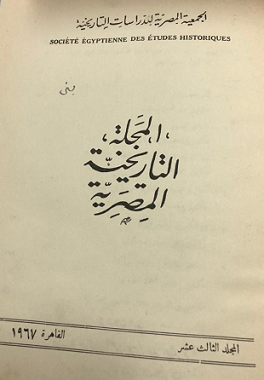 الجمعية المصرية للدراسات التاريخية
SOCIÉTÉ ÉGYPTIENNE DES ÉTUDES HISTORIQUES
المجلة
التاريخية
المصرية
المجلد الثالث عشر
القاهرة ١٩٦٧